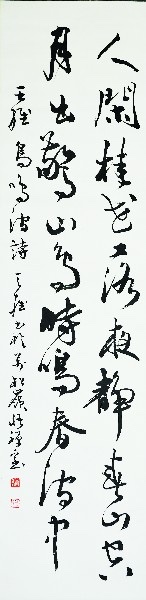 人閑桂花落夜静春山空
月出驚山鳥時鳴春澗中
王維鳥鳴澗詩